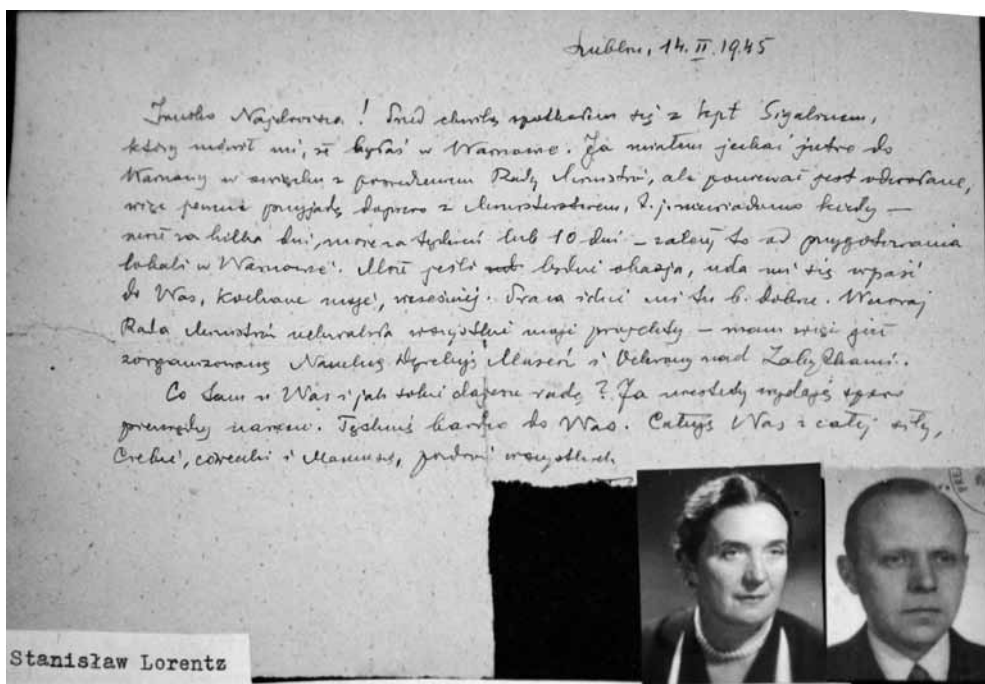 Lublin, 14.II.1945
Irenko Najdroższa! Przed chwilą spotkałem się z kpt Sigalinem,
który mówił mi, że byłaś w Warszawie. Ja miałem jechać jutro do
Warszawy w związku z posiedzeniem Rady Ministrów, ale ponieważ jest odwołane,
więc pewnie przyjadę dopiero z Ministerstwem, t.j. niewiadomo kiedy –
może za kilka dni, może za tydzień lub 10 dni – zależy to od przygotowania
lokali w Warszawie. Może jeśli będzie okazja, uda mi się wpaść
do Was, kochane moje, wcześniej. Praca idzie mi tu b. dobrze. Wczoraj
Rada Ministrów uchwaliła wszystkie moje projekty – mam więc już
zorganizowaną Naczelną Dyrekcję Muzeów i Ochrony nad Zabytkami.
Co tam u Was i jak sobie dajecie radę? Ja niestety wydaję sporo
pieniędzy narazie. Tęsknię bardzo do Was. Całuję Was z całej siły,
Ciebie, córeczki i Mamusię, pozdrów wszystkich
Stanisław Lorentz